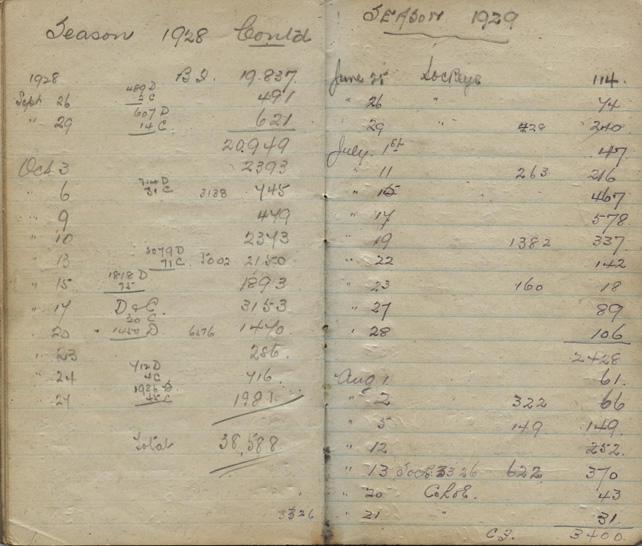 Season 1928 Contd
1928 B.F. 19.837
489 D
Sept 26 2 C 491
607 D
" 29 14 C 621
20.949
Oct 3 2393
" 6 714 D 31 C 3138 745
" 9 479
" 10 2373
" 13 2079 D 71 C. 5002 2150
" 15 1818 D 75 1893
" 17 D & C. 3153
30 C
" 20 " 1440 D 6516 1470
" 23 286.
712 D
" 24 4 C 716.
1936 D.
" 27 45 C 1981
Total 38,588
3326
SEASON 1929
June 25 Sockeye 114.
" 26 " 74
" 29 " 428 240
July. 1st 47
" 11 263 216
" 15 467
" 17 578
" 19 1382 337
" 22 142
" 23 160 18
" 27 89
" 28 106
2428
Aug 1 61.
" 2 322 66
" 5 149 149.
" 12 252.
" 13 Sock 3326 622 370
" 20 Cohoe. 43
" 21 " 31.
C.F. 3400.